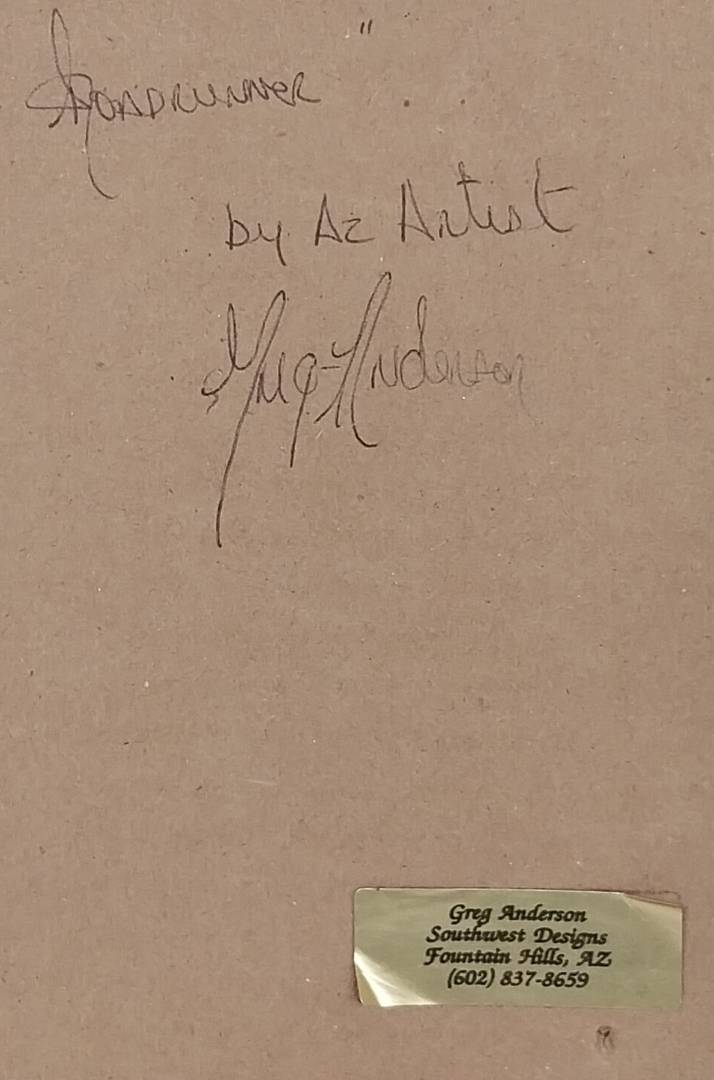 Roadrunner "
by Az Artist
Greg Anderson
Greg Anderson
Southwest Designs
Fountain Hills, AZ
(602) 837-8659